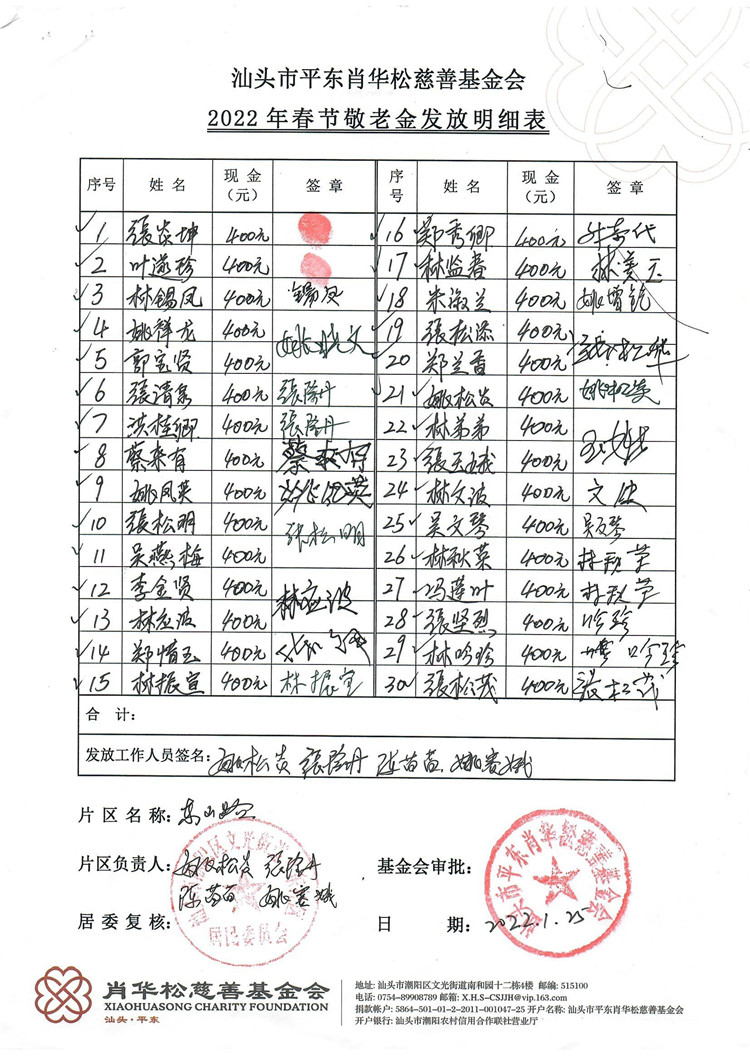 汕头市平东肖华松慈善基金会
2022年春节敬老金发放明细表
序号 姓名 现金（元） 签章 序号 姓名 现金（元） 签章
1 張炎坤 400元 16 郑秀卿 400元
2 叶遂珍 400元 17 林监春 400元 林美玉
3 林锡凤 400元 锡凤 18 朱淑兰 400元
4 姚祥龙 400元 19 張松添 400元
5 郭宝贤 400元 20 郑兰香 400元
6 張清泉 400元 21 姚松炎 400元
7 洪桂卿 400元 22 林弟弟 400元
8 蔡来有 400元 蔡来有 23 張玉城 400元
9 姚凤英 400元 24 林文波 400元
10 張松明 400元 张松明 25 吴文琴 400元 吴文琴
11 吴燕梅 400元 26 林秋菜 400元
12 李金贤 400元 27 冯莲叶 400元
13 林应波 400元 林应波 28 張坚烈 400元 吟珍
14 郑惜玉 400元 29 林吟珍 400元 吟珍
15 林振宣 400元 林振宣 30 張松茂 400元 張松茂
合 计：
发放工作人员签名： 姚松炎 陈苗苗
片区名称：
片区负责人： 姚松炎
陈苗苗
基金会审批：
居委复核：
居民委员会
汕头市平东肖华松慈善基金会
日 期： 2022.1.25
肖华松慈善基金会
XIAOHUASONG CHARITY FOUNDATION
汕头·平东
地址: 汕头市潮阳区文光街道南和园十二栋4楼 邮编: 515100
电话: 0754-89908789 邮箱: X.H.S-CSJJH@vip.163.com
捐款帐户: 5864-501-01-2-2011-001047-25 开户名称: 汕头市平东肖华松慈善基金会
开户银行: 汕头市潮阳农村信用合作联社营业厅